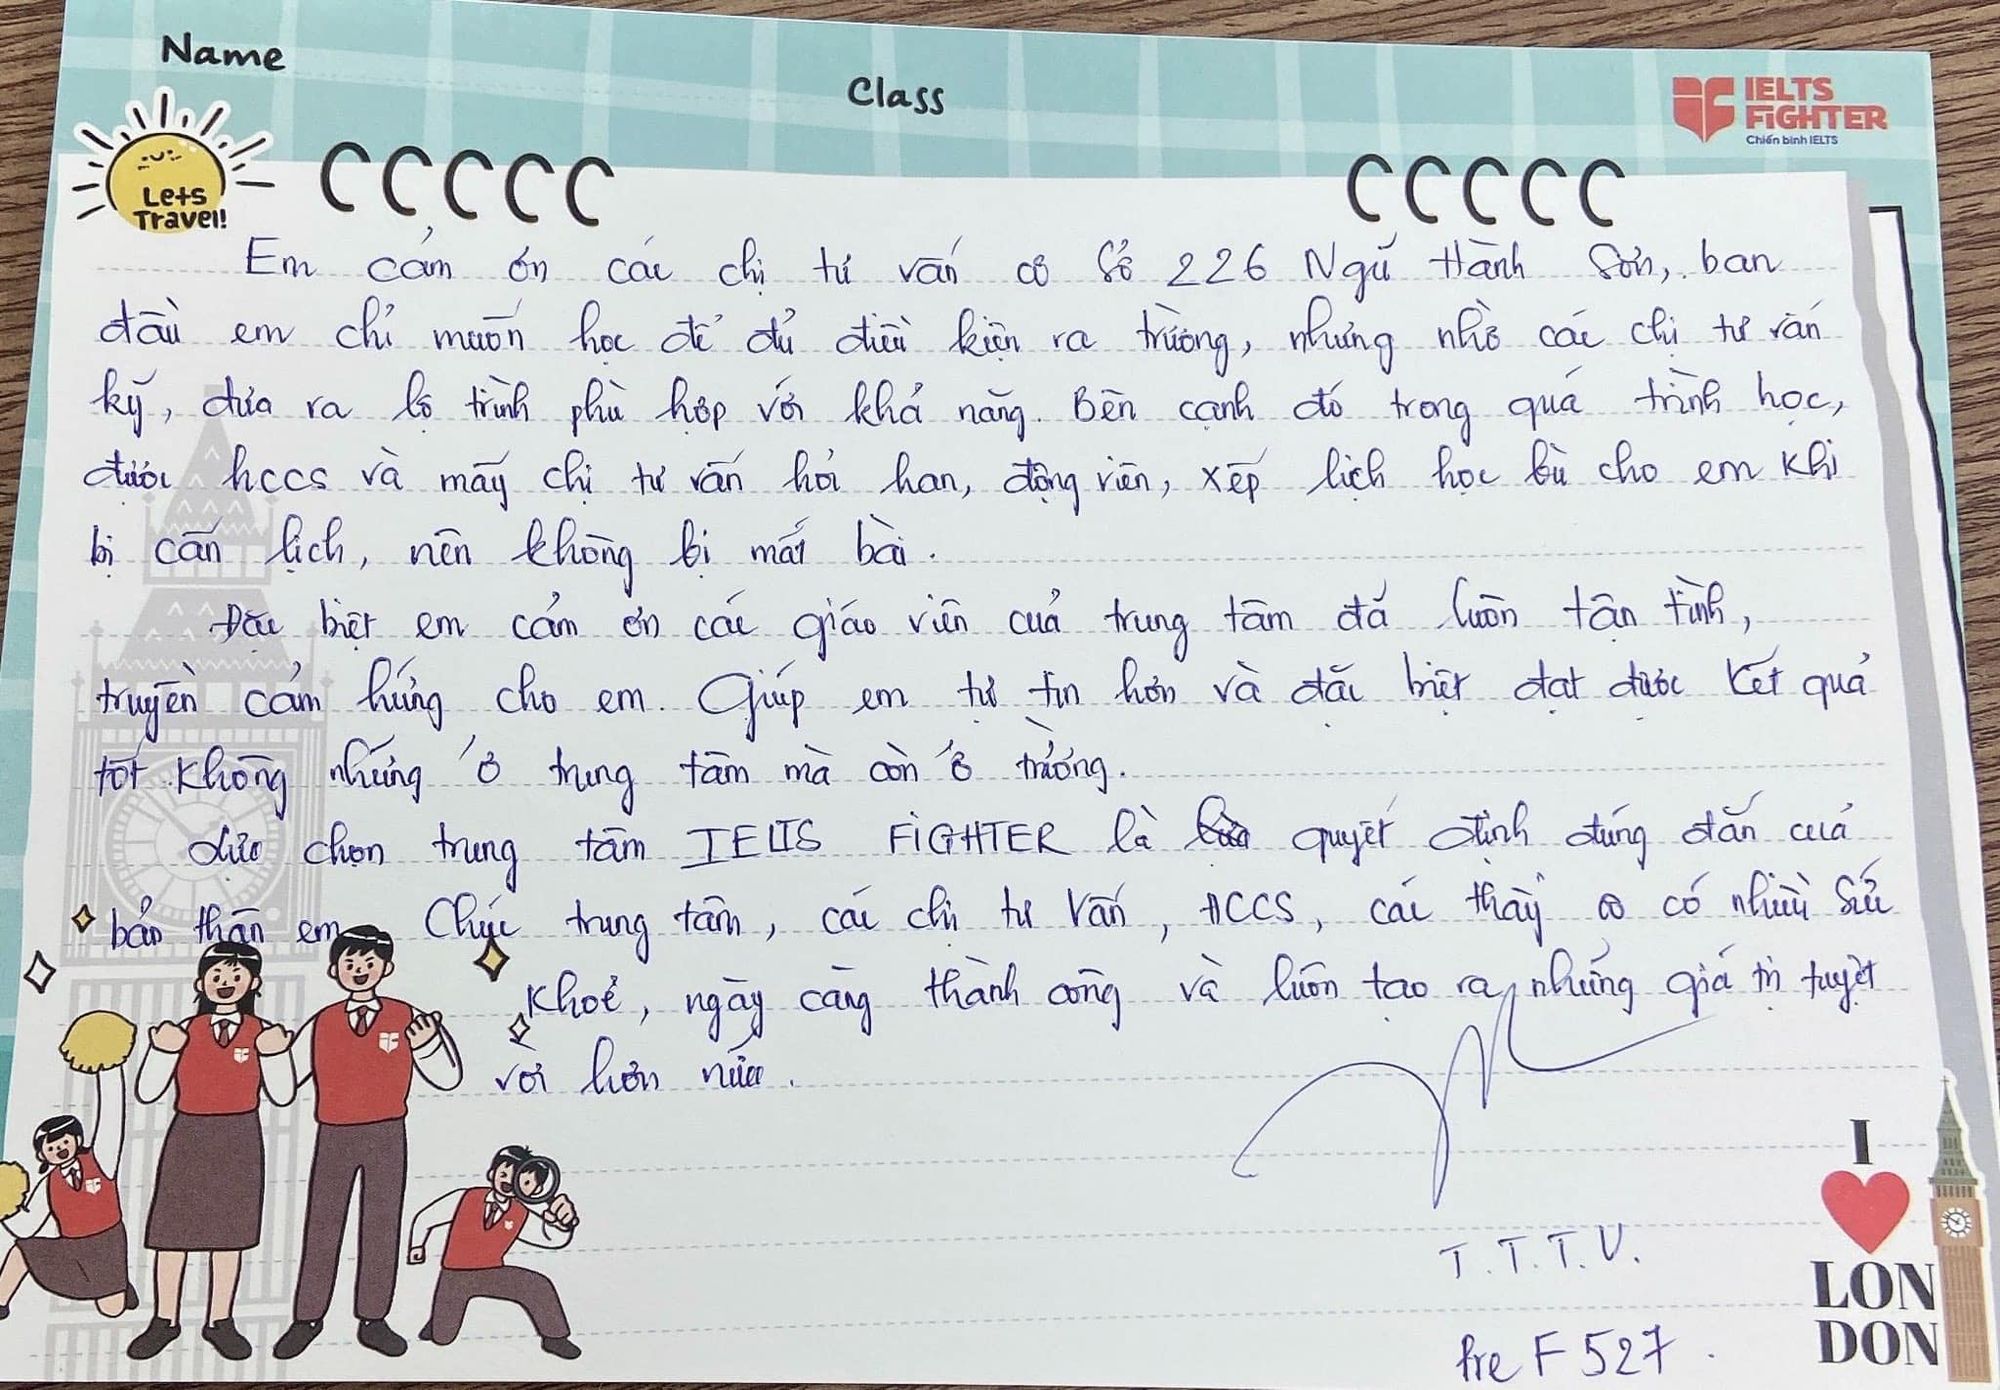 Name
Class
IELTS
FiGHTER
Chiến binh IELTS
Lets
Travel!
Em cảm ơn các chị tư vấn cơ sở 226 Ngũ Hành Sơn, ban
đầu em chỉ muốn học để đủ điều kiện ra trường, nhưng nhờ các chị tư vấn
kỹ, đưa ra lộ trình phù hợp với khả năng. Bên cạnh đó trong quá trình học,
được hccs và mấy chị tư vấn hỏi han, động viên, xếp lịch học bù cho em khi
bị cấn lịch, nên không bị mất bài.
Đặc biệt em cảm ơn các giáo viên của trung tâm đã luôn tận tình,
truyền cảm hứng cho em. Giúp em tự tin hơn và đặc biệt đạt được kết quả
tốt không những ở trung tâm mà còn ở trường.
lựa chọn trung tâm IELTS FIGHTER là quyết định đúng đắn của
bản thân em. Chúc trung tâm, các chị tư vấn, HCCS, các thầy cô có nhiều sức
khoẻ, ngày càng thành công và luôn tạo ra những giá trị tuyệt
vời hơn nữa.
T.T.T.V.
Pre F 527.
I
LON
DON